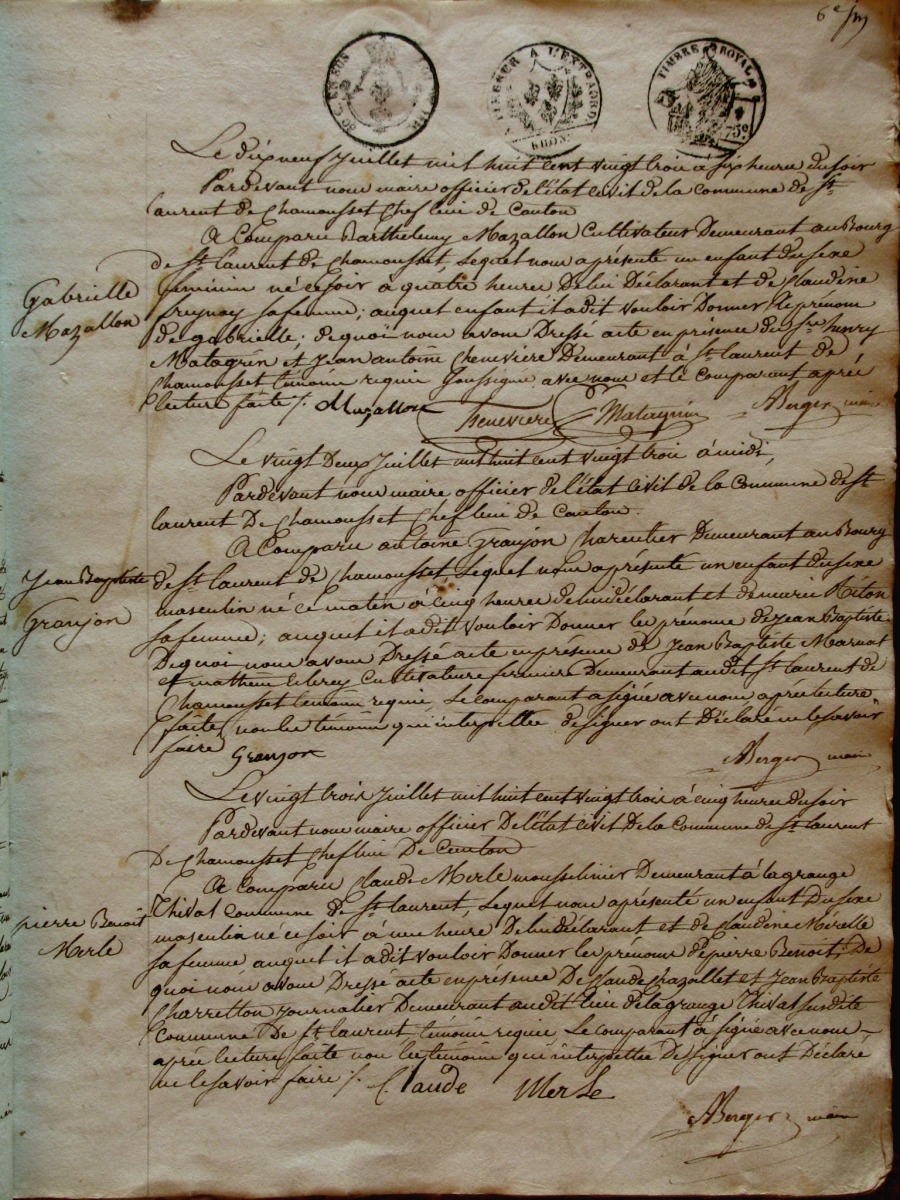 6e
30 C. EN SUS
A TIMBRER A L'EXTRAORD
RHONE
TIMBRE ROYAL
75c
Le dix neuf Juillet mil huit cent vingt trois à six heures du soir
Pardevant nous maire officier de l'état civil de la commune de St
laurent de Chamousset Chef lieu de Canton
A Comparu Barthelemy Mazallon Cultivateur Demeurant au Bourg
de St laurent de Chamousset, Lequel nous a présenté un enfant du sexe
feminin né ce soir à quatre heures De lui Déclarant et de Claudine
freynay sa femme; auquel enfant il a dit vouloir Donner le prenom
de gabrielle; de quoi nous avons Dressé acte en présence de Srs henry
Matagrin et Jean antoine Chenevière Demeurant à St laurent de
Chamousset temoins requis Soussignés avec nous et le comparant après
lecture faite /. Mazallon
Chenevière Matagrin ABerger maire
Gabrielle
Mazallon
Le vingt Deux Juillet mil huit cent vingt trois à midi,
Pardevant nous maire officier de l'état civil de la Commune de St
laurent De Chamousset Chef lieu de Canton.
A Comparu antoine Granjon Charentier Demeurant au Bourg
de St laurent de Chamousset, Lequel nous a présenté un enfant du sexe
masculin né ce matin à cinq heures de lui déclarant et de marie
sa femme; auquel il a dit vouloir Donner les prénoms de Jean Baptiste.
De quoi nous avons Dressé acte en présence de Jean Baptiste Marnat
et mathieu Cultivateurs fermiers Demeurant audit St laurent de
Chamousset temoins requis, Le comparant a signé avec nous après lecture
faite, non les témoins qui interpellés de signer ont Déclaré ne le savoir
faire Granjon
ABerger maire
Jean Baptiste
Granjon
Le vingt trois Juillet mil huit cent vingt trois à cinq heures du soir
Pardevant nous maire officier De l'état civil De la Commune de St laurent
De Chamousset Chef lieu De Canton
A Comparu Claude Merle mousselinier Demeurant à la grange
Thival Commune de St laurent, Lequel nous a présenté un enfant Du sexe
masculin né ce soir à une heure De lui déclarant et de Claudine
sa femme auquel il a dit vouloir Donner les prénoms de pierre Benoit, De
quoi nous avons Dressé acte en présence De Claude Chazallet et Jean Baptiste
Charretton Journalier Demeurant audit lieu de la grange Thival susdite
Commune De St laurent, témoins requis, Le comparant à signé avec nous —
après lecture faite non les temoins qui interpellés De signer ont Déclaré
ne le savoir faire /. Claude Merle
ABerger maire
pierre Benoit
Merle